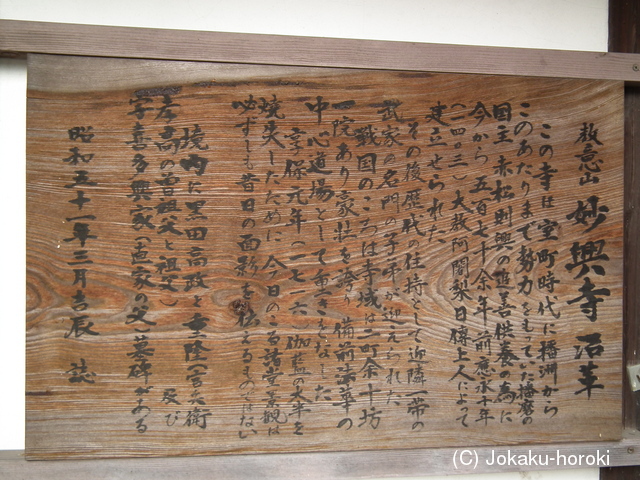 教意山 妙興寺 沿革
この寺は室町時代に播州から
このあたりまで勢力をもっていた播磨の
国主 赤松則興の追善供養の為に
今から五百七十余年前 応永十年
(一四〇三)大教阿闍梨日伝上人によって
建立せられた。
その後歴代の住持として近隣一帯の
武家の名門の子弟が迎えられた
戦国のころは寺域は二町余 十坊
一院あり 豪壮を誇り 備前法華の
中心道場として重きをなした
享保元年(一七一六)伽藍の大半を
焼失したために 今日のこる諸堂景観は
必ずしも昔日の面影を伝えるものではない
境内に黒田高政と重隆(官兵衛
孝高の曽祖父と祖父) 及び
宇喜多興家(直家の父)墓碑がある
昭和五十一年三月吉辰 誌
(C) Jokaku-horoki